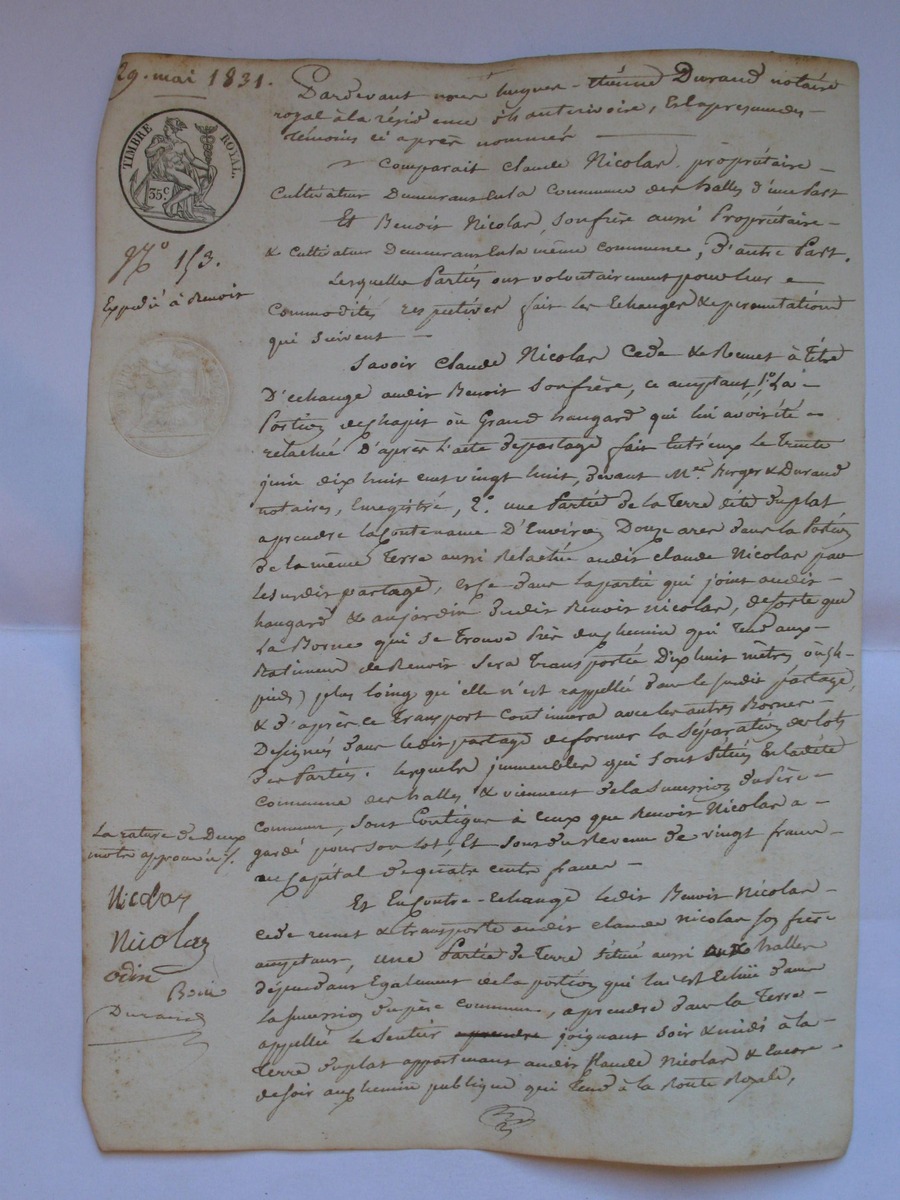 29. mai 1831.
Pardevant nous hugues-étienne Durand notaire
royal à la résidence de St anterivoire, Et en présence des
témoins ci après nommés
TIMBRE ROYAL.
35c.
Comparait Claude Nicolas, propriétaire
Cultivateur Demeurant en la Commune des halles d'une Part
Et Benoit Nicolas, son frère aussi Propriétaire
& Cultivateur Demeurant en la même Commune, D'autre Part.
No 153.
Expédié à Benoit
Lesquelles Parties ont volontairement pour leurs
Commodités respectives fait les Echanges & permutations
qui suivent
Savoir Claude Nicolas Cede & Remet à titre
D'échange audit Benoit son frère, ce acceptant, 1o La
Portion de chapit ou Grand hangard qui lui avoit été
relaché D'après l'acte de partage fait entr'eux le Trente
juin dix huit cent vingt huit, devant Mes. & Durand
notaires, Enregistré, 2o. une Partie de la Terre dite Du plat
a prendre la Contenance D'Environ Douze ares dans la Portion
de la même Terre aussi Relachée audit Claude Nicolas par
le susdit partage, Et ce dans la partie qui joint audit
hangard & au jardin dudit Benoit Nicolas, de sorte que
La Borne qui se trouve Près du chemin qui Tend aux
Batiment de Benoit Sera Transportée Dix huit mètres (ou 54
pieds) plus loing qu'elle n'est rappellée dans le susdit partage,
& d'après ce Transport Continuera avec les autres Bornes
Designés dans ledit partage de former la Séparation des lots
des Parties. lesquels immeubles qui sont Situés En la dite
Commune des halles & viennent de la Succession du Père
Commun, sont Contigus à Ceux que Benoit Nicolas a
gardé pour son lot, Et Sont du Revenu de vingt francs
au Capital de quatre cents francs
La rature de Deux
mots approuvée
Nicolas
Nicolas
odin
Durand
Et En Contre-Echange ledit Benoit Nicolas
cede remet & transporte audit Claude Nicolas son frère
acceptant, une Partie de Terre Située aussi aux halles
dependant Egalement de la portion qui lui est Echüe dans
la Succession du père Commun, a prendre dans la Terre
appellée le Sentier aprendre joignant Soir & midi à la
Terre du plat appartenant audit Claude Nicolas & Encore
de soir au chemin publique qui Tend à la Route Royale,